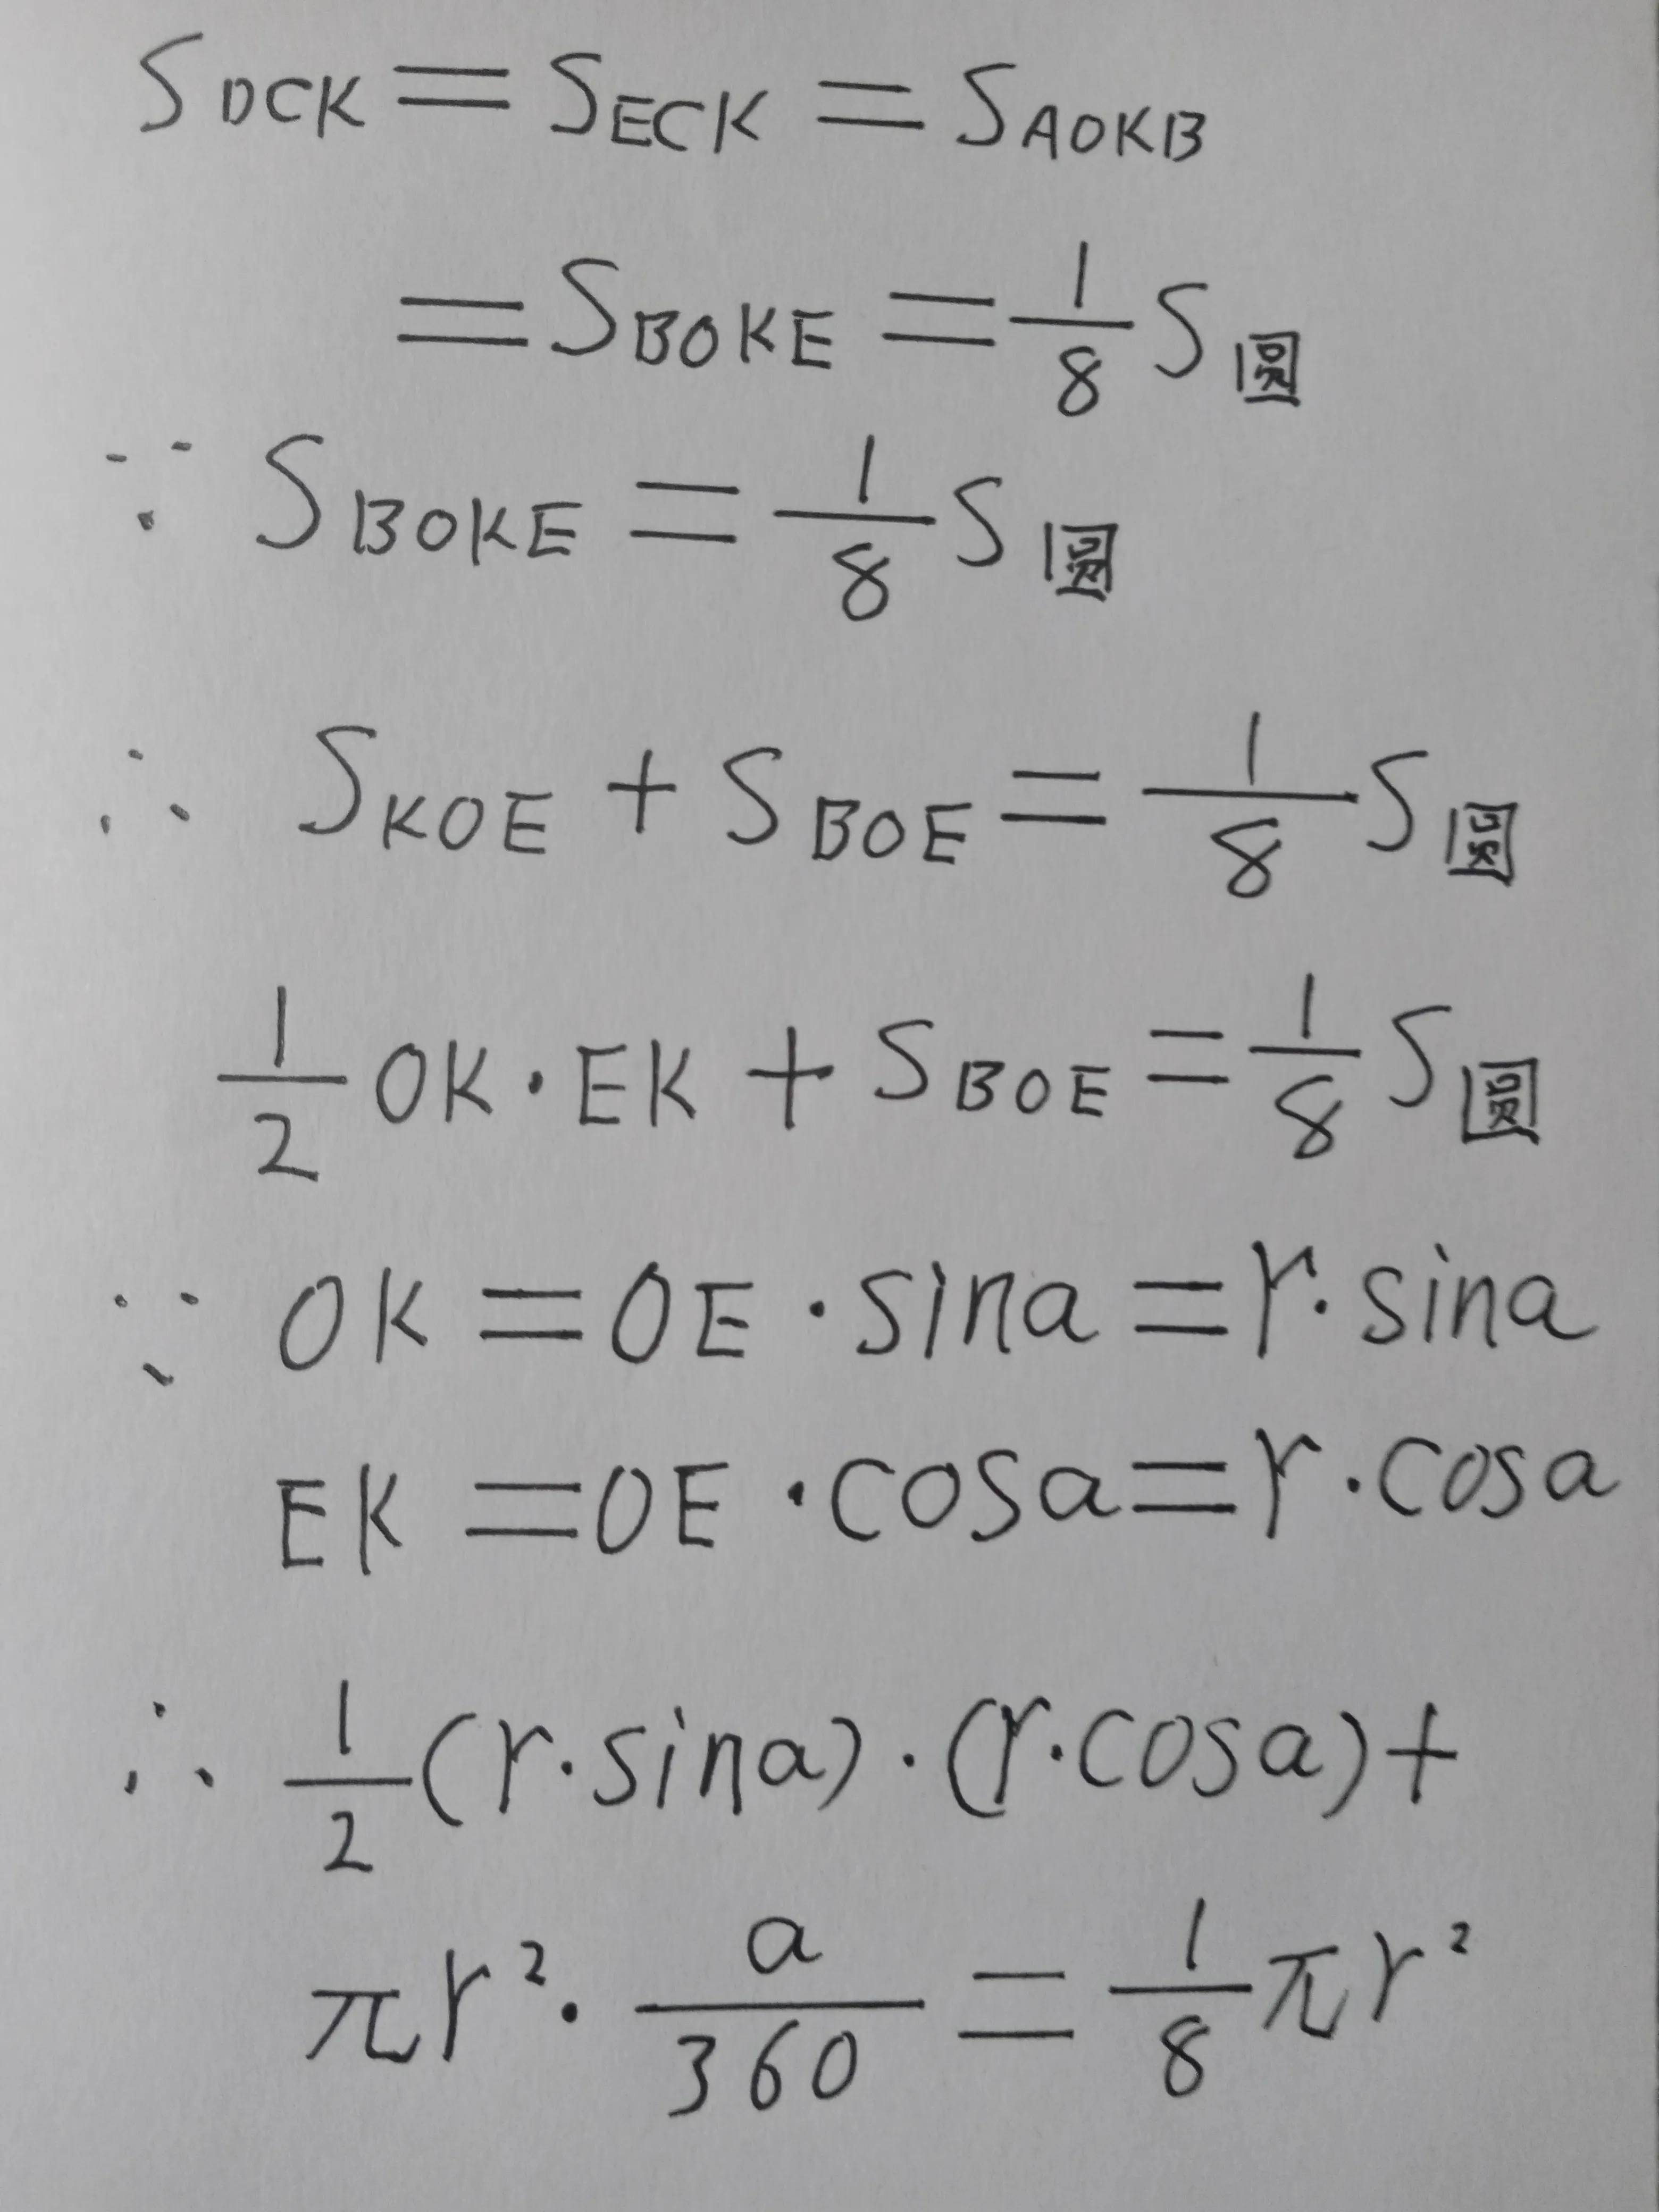 S DCK = S ECK = S AOKB
= S BOKE = 1/8 S 圆
∵ S BOKE = 1/8 S 圆
∴ S KOE + S BOE = 1/8 S 圆
1/2 OK · EK + S BOE = 1/8 S 圆
∵ OK = OE · sina = r · sina
EK = OE · cosa = r · cosa
∴ 1/2 (r · sina) · (r · cosa) +
πr² · a/360 = 1/8 πr²